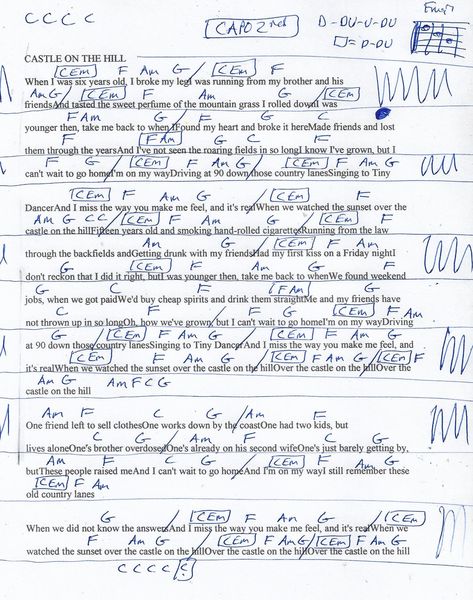 C C C C
CAPO 2nd
D - DU - U - DU
□ = D - DU
CASTLE ON THE HILL
CEm F Am G / CEm F
When I was six years old, I broke my legI was running from my brother and his
Am G / CEm F G
friendsAnd tasted the sweet perfume of the mountain grass I rolled downI was
F Am G / F G C
younger then, take me back to whenIFound my heart and broke it hereMade friends and lost
F FAm G C
them through the yearsAnd I've not seen the roaring fields in so longI know I've grown, but I
F G / CEm F Am G / CEm F Am G
can't wait to go homeI'm on my wayDriving at 90 down those country lanesSinging to Tiny
CEm F Am G / CEm F
DancerAnd I miss the way you make me feel, and it's realWhen we watched the sunset over the
Am G C C / F Am G / CEm F
castle on the hillFifteen years old and smoking hand-rolled cigarettesRunning from the law
Am G / CEm F
through the backfields andGetting drunk with my friendsHad my first kiss on a Friday nightI
G CEm F Am G / F
don't reckon that I did it right, butI was younger then, take me back to whenWe found weekend
G C F FAm G
jobs, when we got paidWe'd buy cheap spirits and drink them straightMe and my friends have
C F G CEm F Am
not thrown up in so longOh, how we've grown, but I can't wait to go homeI'm on my wayDriving
G / CEm F Am G / CEm F Am
at 90 down those country lanesSinging to Tiny DancerAnd I miss the way you make me feel, and
G / CEm F Am G / CEm F Am G / CEm F
it's realWhen we watched the sunset over the castle on the hillOver the castle on the hillOver the
Am G Am F C G
castle on the hill
Am F C G / Am F
One friend left to sell clothesOne works down by the coastOne had two kids, but
C G Am F C G
lives aloneOne's brother overdosedOne's already on his second wifeOne's just barely getting by,
Am F C G F Am G
butThese people raised meAnd I can't wait to go homeAnd I'm on my wayI still remember these
CEm F Am G
old country lanes
G / CEm F Am G / CEm
When we did not know the answersAnd I miss the way you make me feel, and it's realWhen we
F Am G / CEm F Am G / CEm F Am G
watched the sunset over the castle on the hillOver the castle on the hillOver the castle on the hill
C C C C C